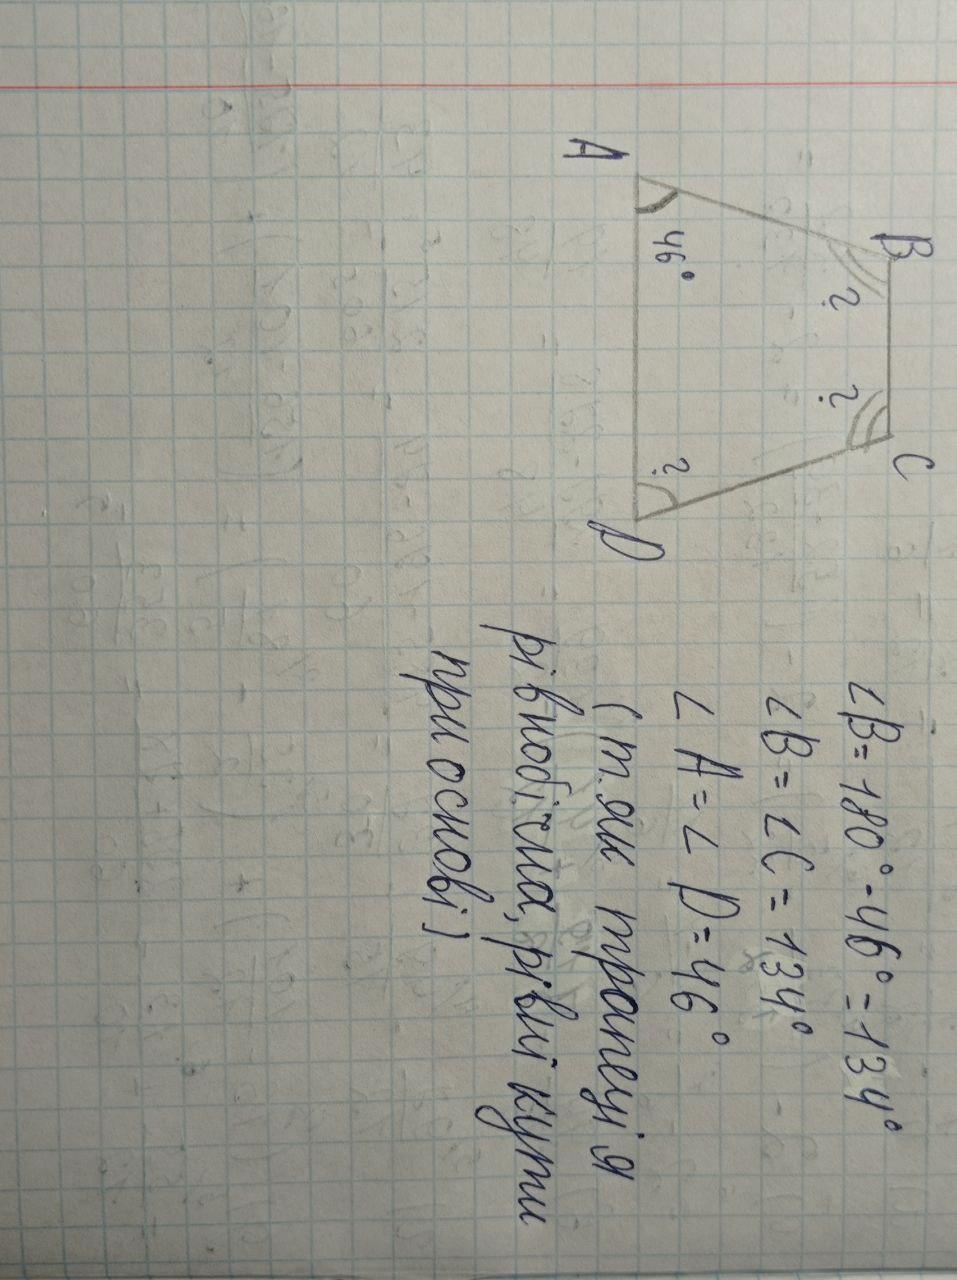 B
C
?
?
46°
?
A
D
∠B=180°-46°=134°
∠B=∠C=134°
∠A=∠D=46°
(т.як трапеція
рівнобічна, рівні кути
при основі)